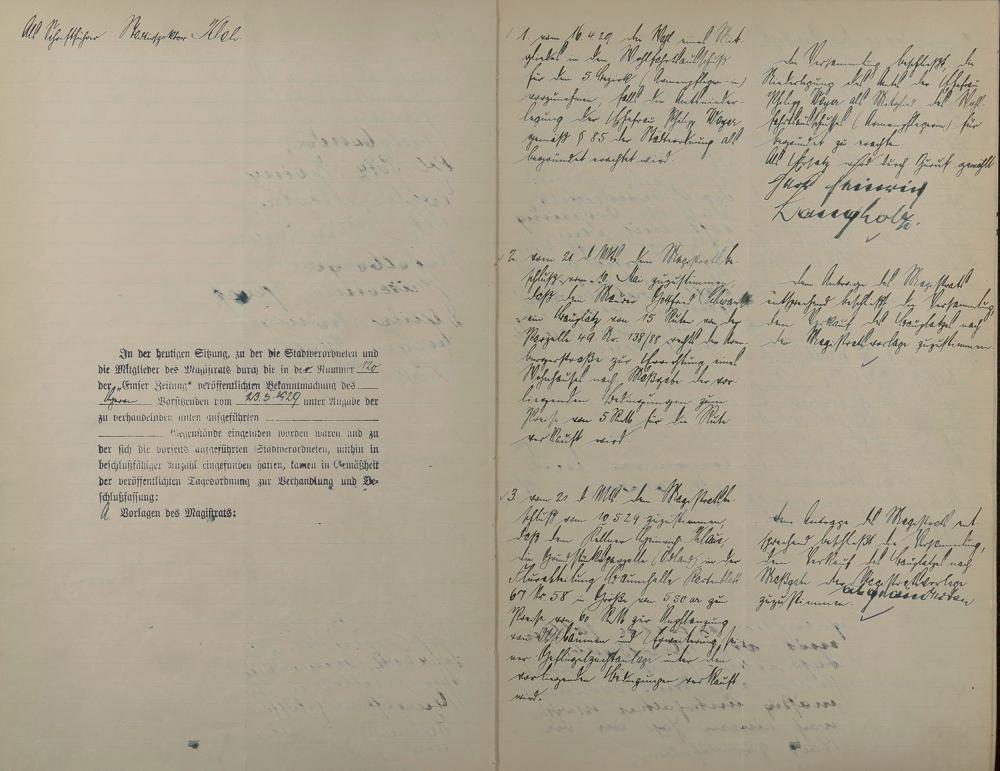 Als Schriftführer Stadtinspektor
In der heutigen Sitzung, zu der die Stadtverordneten und
die Mitglieder des Magistrats durch die in der Nummer 120
der „Emser Zeitung“ veröffentlichten Bekanntmachung des
Herrn Vorsitzenden vom 23.5.1929 unter Angabe der
zu verhandelnden unten aufgeführten
Gegenstände eingeladen worden waren und zu
der sich die vorseits aufgeführten Stadtverordneten, mithin in
beschlußfähiger Anzahl eingefunden hatten, kamen in Gemäßheit
der veröffentlichten Tagesordnung zur Verhandlung und Be-
schlußfassung:
A. Vorlagen des Magistrats:
1. vom 16.4.29 die Wahl eines Mit-
gliedes in den Wohlfahrtsausschuß
für den 5. Bezirk (Armenpfleger-in)
vorzunehmen, falls die Amtsnieder-
legung der Ehefrau Philipp
gemäß § 85 der Städteordnung als
begründet erachtet wird.
Die Versammlung beschließt, die
Niederlegung des Amts der Ehefrau
Philipp als Mitglied des Wohl-
fahrtsausschusses (Armenpflegerin) für
begründet zu erachten.
Als Ersatz wird durch Zuruf gewählt
Heinrich
Langholz.
2. vom 21. d. Mts. dem Magistratsbe-
schluß vom 10. Mai zuzustimmen,
daß dem Maurer Gottfried
ein Bauplatz von 15 Ruten von der
Parzelle 49 Nr. 138/88 rechts der Arn-
bergerstraße zur Errichtung eines
Wohnhauses nach Maßgabe der vor-
liegenden Bedingungen zum
Preise von 5 RM für die Rute
verkauft wird.
Dem Antrage des Magistrats
entsprechend beschließt die Versammlung,
dem Verkauf des Bauplatzes nach
der Magistratsvorlage zuzustimmen.
3. vom 21. d. Mts. dem Magistratsbe-
schluß vom 10.5.29 zuzustimmen,
daß dem Kellner Heinrich
die Grundstücksparzelle (Ödland) in der
Flurabteilung Kartenblatt
67 Nr. 58 in Größe von 5,30 ar zum
Preise von 60 RM zur Anpflanzung
von Obstbäumen und Erweiterung sei-
ner Geflügelzuchtanlage unter den
vorliegenden Bedingungen verkauft
wird.
Dem Antrage des Magistrats ent-
sprechend beschließt die Versammlung,
dem Verkauf des Bauplatzes nach
Maßgabe der Magistratsvorlage
zuzustimmen.